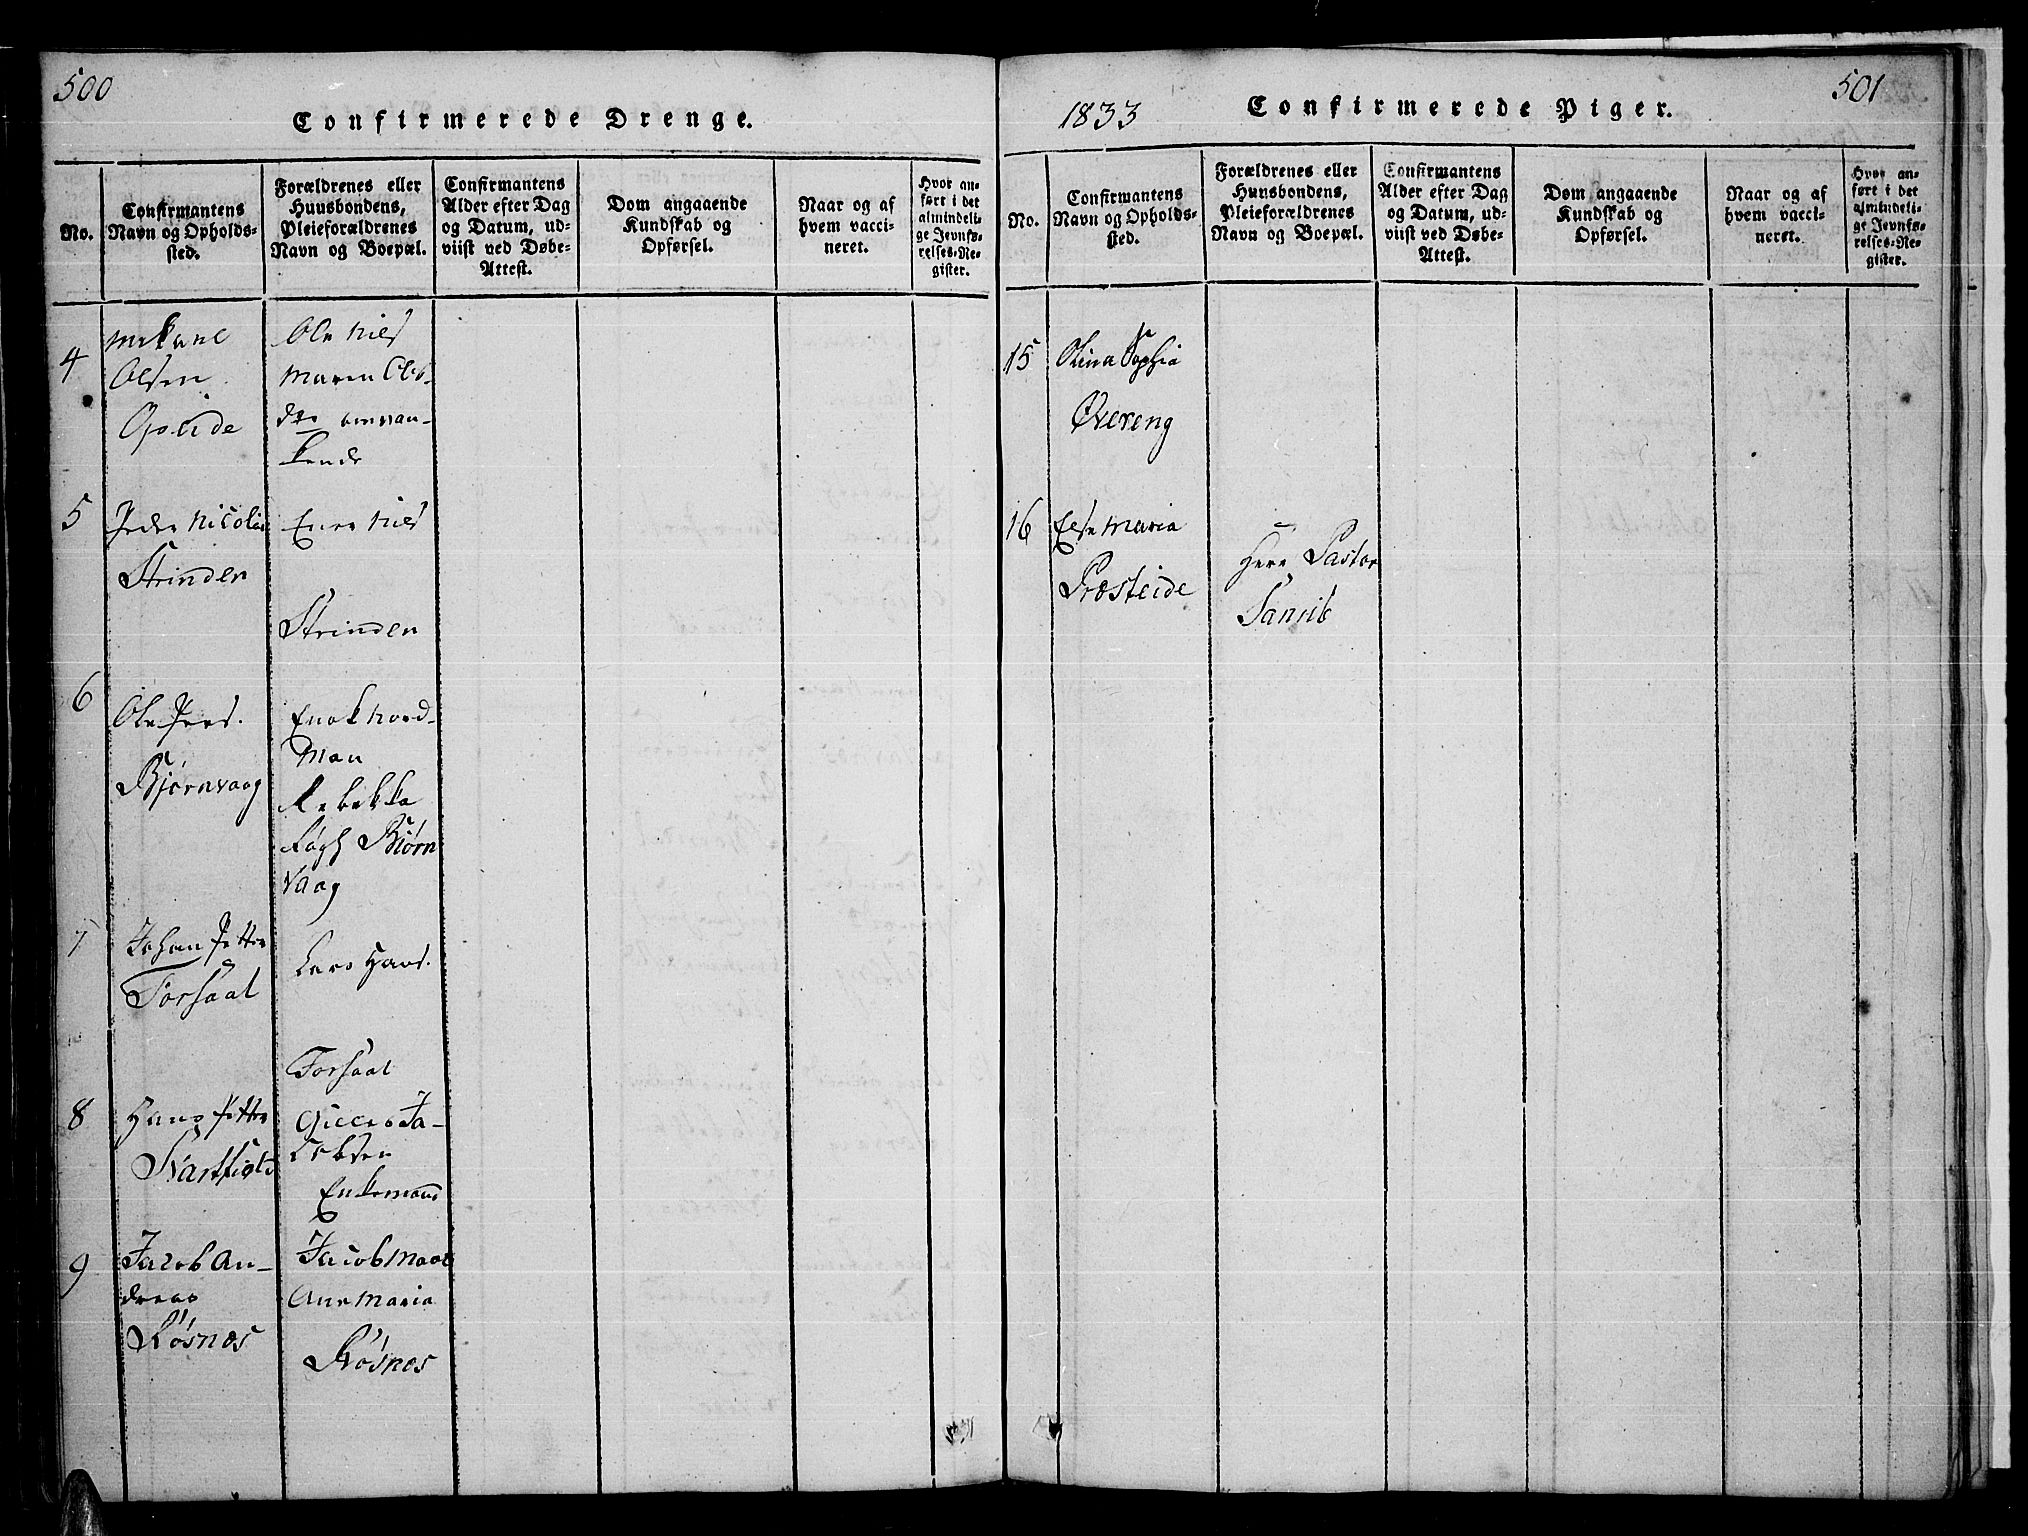 500
Confirmerede Drenge.
No.
Confirmantens
Navn og Opholds-
sted.
Forældrenes eller
Huusbondens,
Pleieforældrenes
Navn og Boepæl.
Confirmantens
Alder efter Dag
og Datum, ud-
viist ved Døbe-
Attest.
Dom angaaende
Kundskab og
Opførsel.
Naar og af
hvem vacci-
neret.
Hvor an-
ført i det
almindeli-
ge Jevnfø-
relses-Re-
gister.
4
Olsen
Opeide
Ole Niels
Maren Ols-
omvan-
kende
5
Peder Nicolai
Strinden
Niels
Strinden
6
Ole Peers.
Bjørnvaag
Enok Nord-
man
Rebekka
Bjørn
vaag
7
Johan Petter
Forsaal
Lars Hans.
Forsaal
8
Hans Petter
Gullas Ja-
cobsen
Enkemand
9
Jacob An-
dreas
Røsnes
Jacob
Ane Maria
Røsnes
1833
Confirmerede Piger.
501
No.
Confirmantens
Navn og Opholds-
sted.
Forældrenes eller
Huusbondens,
Pleieforældrenes
Navn og Boepæl.
Confirmantens
Alder efter Dag
og Datum, ud-
viist ved Døbe-
Attest.
Dom angaaende
Kundskab og
Opførsel.
Naar og af
hvem vacci-
neret.
Hvor an-
ført i det
almindeli-
ge Jevnfø-
relses-Re-
gister.
15
Olina Sophia
Øvereng
16
Else Maria
Præsteide
Herr Pastor